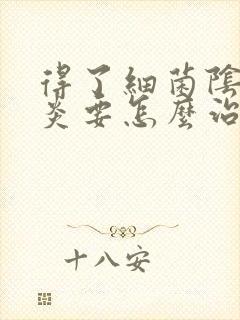 得了細菌陰
炎要怎麼治
十八安